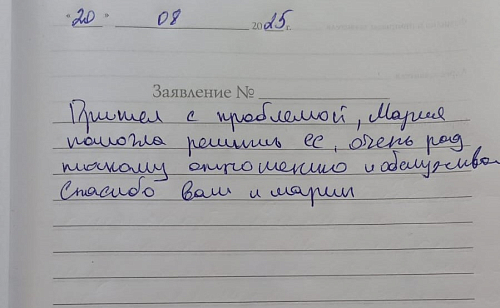 "20" 08 2025г.
Заявление №
Пришел с проблемой, Мария
помогла решить ее, очень рад
такому отношению и обслужива
Спасибо вам и марии